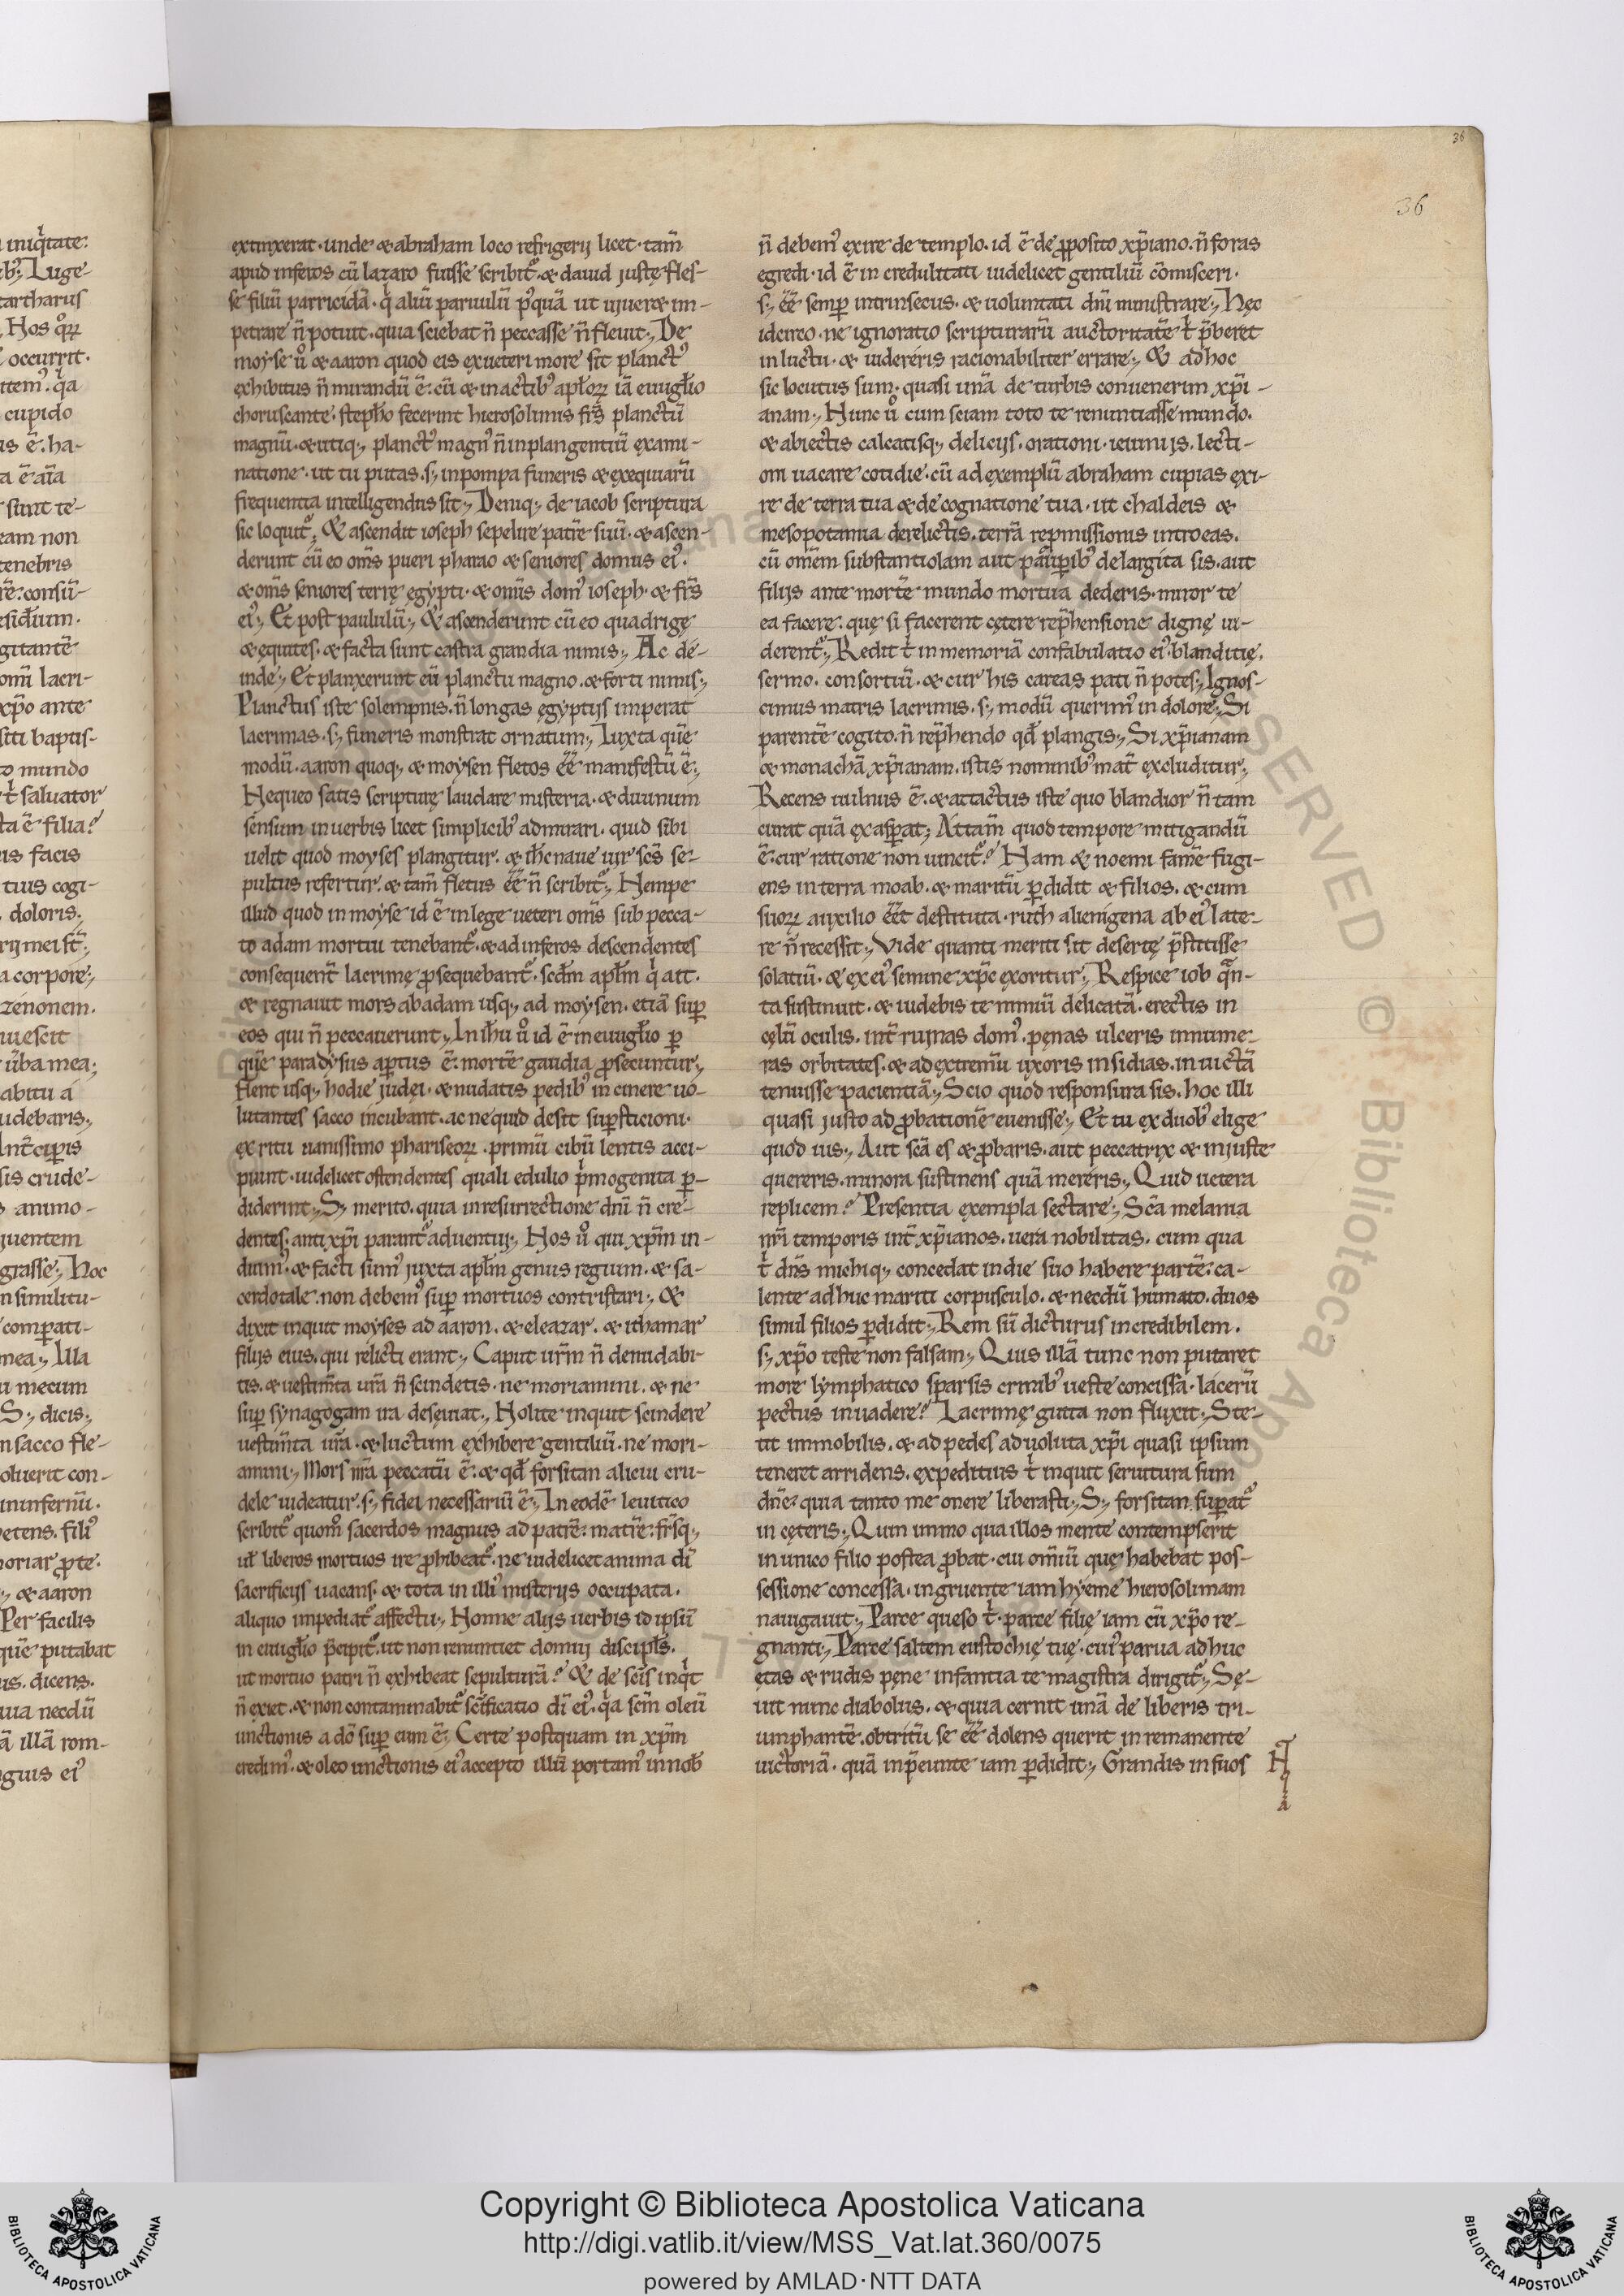 36
36
extinxerat · unde & abraham loco refrigerij licet · tam̄
apud inferos cū lazaro fuisse scribit᷑ · & dauid justę fles-
se filiū parricidā · q̇ aliū paruulū p'quā ut uiueret im-
petrare n̄ potuit · quia sciebat n̄ peccasse n̄ fleuit ;, De
moyse ů & aaron quod eis ex ueteri more sit planct'
exhibitus n̄ mirandū ē · cū & in actib' apl̄oꝝ iā euuḡlio
choruscante · steph̄o fecerint hierosolimis fr̄s planctū
magnū · & utiq;, planct' magn' n̄ in plangentiū exami-
natione · ut tu putas · s;, in pompa funeris & exequiarū
frequentia intelligendus sit ;, Deniq;, de iacob scriptura
sic loquit᷑ ; & ascendit ioseph sepelire patrē suū · & ascen-
derunt cū eo om̄s pueri pharao & seniores domus ei' ·
& om̄s seniores terrę egypti · & om̄s dom' ioseph · & fr̄s
ei' ;, Et post paululū ;, & ascenderunt cū eo quadrigę
& equites · & facta sunt castra grandia nimis ;, Ac de-
inde ;, Et planxerunt eū planctu magno · & forti nimis ;,
Planctus iste solempnis · n̄ longas ęgyptijs imperat
lacrimas · s;, funeris monstrat ornatum ;, Iuxta quē
modū · aaron quoq;, & moysen fletos ēē manifestū ē ;,
Nequeo satis scripturę laudare misteria · & diuinum
sensum in uerbis licet simplicib' admirari · quid sibi
uelit quod moyses plangitur · & ih̄c naue uir sc̄s se-
pultus refertur · & tam̄ fletus ēē n̄ scribit᷑ ;, Nempe
illud quod in moyse id ē in lege ueteri om̄s sub pecca-
to adam mortui tenebant᷑ · & ad inferos descendentes
consequent᷑ lacrimę ꝓsequebant᷑ · scd̄m apl̄m q̇ ait ·
& regnauit mors ab adam usq;, ad moysen · etiā suꝑ
eos qui n̄ peccauerunt ;, In ih̄u ů id ē in euuḡlio ꝑ
quē paradysus aꝑtus ē · mortē gaudia ꝓsecuntur ;,
flent usq;, hodie judęi · & nudatis pedib' in cinere uo-
lutantes sacco incubant · ac ne quid desit suꝑsticioni ·
ex ritu uanissimo phariseoꝝ · primū cibū lentis acci-
piunt · uidelicet ostendentes quali edulio p̄mogenita ꝑ-
diderint ;, S;, merito · quia in resurrectione dn̄i n̄ cre-
dentes · antixp̄i parant᷑ aduentui ;, Nos ů qui xp̄m in-
duim' · & facti sum' juxta apl̄m genus regium · & sa-
cerdotale · non debem' suꝑ mortuos contristari ;, &
dixit inquit moyses ad aaron · & eleazar · & ithamar
filijs eius · qui relicti erant ;, Caput ur̄m n̄ denudabi-
tis · & uestim̄ta ur̄a n̄ scindetis · ne moriamini · & ne
suꝑ synagogam ira deseuiat ;, Nolite inquit scindere
uestim̄ta ur̄a · & luctum exhibere gentiliū · ne mori-
amini ;, Mors nr̄a peccatū ē · & qd̄ forsitan alicui cru-
dele uideatur · s;, fidei necessariū ē ;, In eodē leuitico
scribit᷑ quom̊ sacerdos magnus ad patrē · matrē · fr̄sq;,
ul̄ liberos mortuos ire ꝓhibeat᷑ · ne uidelicet anima dī
sacrificijs uacans · & tota in illi' misterijs occupata ·
aliquo impediat᷑ affectu ;, Nonne alijs uerbis id ipsū
in euuḡlio p̄cipit᷑ · ut non renuntiet domui discipl̄s ·
ut mortuo patri n̄ exhibeat sepulturā ? & de sc̄is inq̇t
n̄ exiet · & non contaminabit᷑ sc̄ificatio dī ei' · q̇a sc̄m oleū
unctionis a dō suꝑ eum ē ;, Certe postquam in xp̄m
credim' · & oleo unctionis ei' accepto illū portam' in nob̄
n̄ debem' exire de templo · id ē de ꝓposito xp̄iano · n̄ foras
egredi · id ē in credulitati uidelicet gentiliū cōmisceri ·
s;, ēē semꝑ intrinsecus · & uoluntati dn̄i ministrare ;, Hęc
idcirco · ne ignoratio scripturarū auctoritatē t̉ p̄beret
in luctu · & uidereris racionabiliter errare ;, & ad hoc
sic locutus sum · quasi unā de turbis conuenerim xp̄i-
anam ;, Nunc ů cum sciam toto te renuntiasse mundo ·
& abiectis calcatisq;, delicijs · orationi · ieiunijs · lecti-
oni uacare cotidie · cū ad exemplū abraham cupias exi-
re de terra tua & de cognatione tua · ut chaldeis &
mesopotamia derelictis · terrā repmissionis introeas ·
cū om̄em substantiolam aut pauꝑib' delargita sis · aut
filijs ante mortē mundo mortua dederis · miror te
ea facere · quę si facerent cętere rep̄hensione dignę ui-
derent᷑ ;, Redit t̉ in memoriā confabulatio ei' · blanditię ·
sermo · consortiū · & cur his careas pati n̄ potes ;, Ignos-
cimus matris lacrimis · s;, modū querim' in dolore ;, Si
parentē cogito · n̄ rep̄hendo qd̄ plangis ;, Si xp̄ianam
& monachā xp̄ianam · istis nominib' mat̄ excluditur ;,
Recens uulnus ē · & attactus iste quo blandior n̄ tam
curat quā exasꝑat ; Attam̄ quod tempore mitigandū
ē · cur ratione non uincit᷑ ? Nam & noemi famē fugi-
ens in terra moab · & maritū ꝑdidit & filios · & cum
suoꝝ auxilio ēēt destituta · ruth alienigena ab ei' late-
re n̄ recessit ;, Vide quanti meriti sit desertę p̄stitisse
solatiū · & ex ei' semine xp̄c exoritur ;, Respice iob qn̄-
ta sustinuit · & uidebis te nimiū delicatā · erectis in
cęlū oculis · int̄ ruinas dom' · pęnas ulceris innume-
ras orbitates · & ad extremū uxoris insidias · in uictā
tenuisse pacientiā ;, Scio quod responsura sis · hoc illi
quasi justo ad ꝓbationē euenisse ;, Et tu ex duob' elige
quod uis ;, Aut sc̄a es & ꝓbaris · aut peccatrix & injuste
quereris · minora sustinens quā mereris ;, Quid uetera
replicem ? Presentia exempla sectare ;, Sc̄a melania
nr̄i temporis int̄ xp̄ianos · uera nobilitas · cum qua
t̉ dn̄s michiq;, concedat in die suo habere partē · ca-
lente adhuc mariti corpusculo · & necdū humato · duos
simul filios ꝑdidit ;, Rem sū dicturus incredibilem ·
s;, xp̄o teste non falsam ;, Quis illā tunc non putaret
more lymphatico sparsis crinib' ueste concissa · lacerū
pectus inuadere ? Lacrimę gutta non fluxit ;, Ste-
tit immobilis · & ad pedes aduoluta xp̄i quasi ipsum
teneret arridens · expeditius t̉ inquit seruitura sum
dn̄e · quia tanto me onere liberasti ;, S;, forsitan suꝑat᷑
in cęteris ;, Quin immo qua illos mente contempserit
in unico filio postea ꝓbat · cui om̄iū quę habebat pos-
sessione concessa · ingruente iam hyeme hierosolimam
nauigauit ;, Parce queso t̉ · parce filię iam cū xp̄o re-
gnanti ;, Parce saltem eustochię tuę · cui' parua adhuc
ętas & rudis pęne infantia te magistra dirigit᷑ ;, Sę-
uit nunc diabolus · & quia cernit unā de liberis tri-
umphantē · obtritū se ēē dolens querit in remanente
uictoriā · quā in p̄eunte iam ꝑdidit ;, Grandis in suos
Copyright © Biblioteca Apostolica Vaticana
http://digi.vatlib.it/view/MSS_Vat.lat.360/0075
powered by AMLAD·NTT DATA
BIBLIOTECA APOSTOLICA VATICANA
BIBLIOTECA APOSTOLICA VATICANA